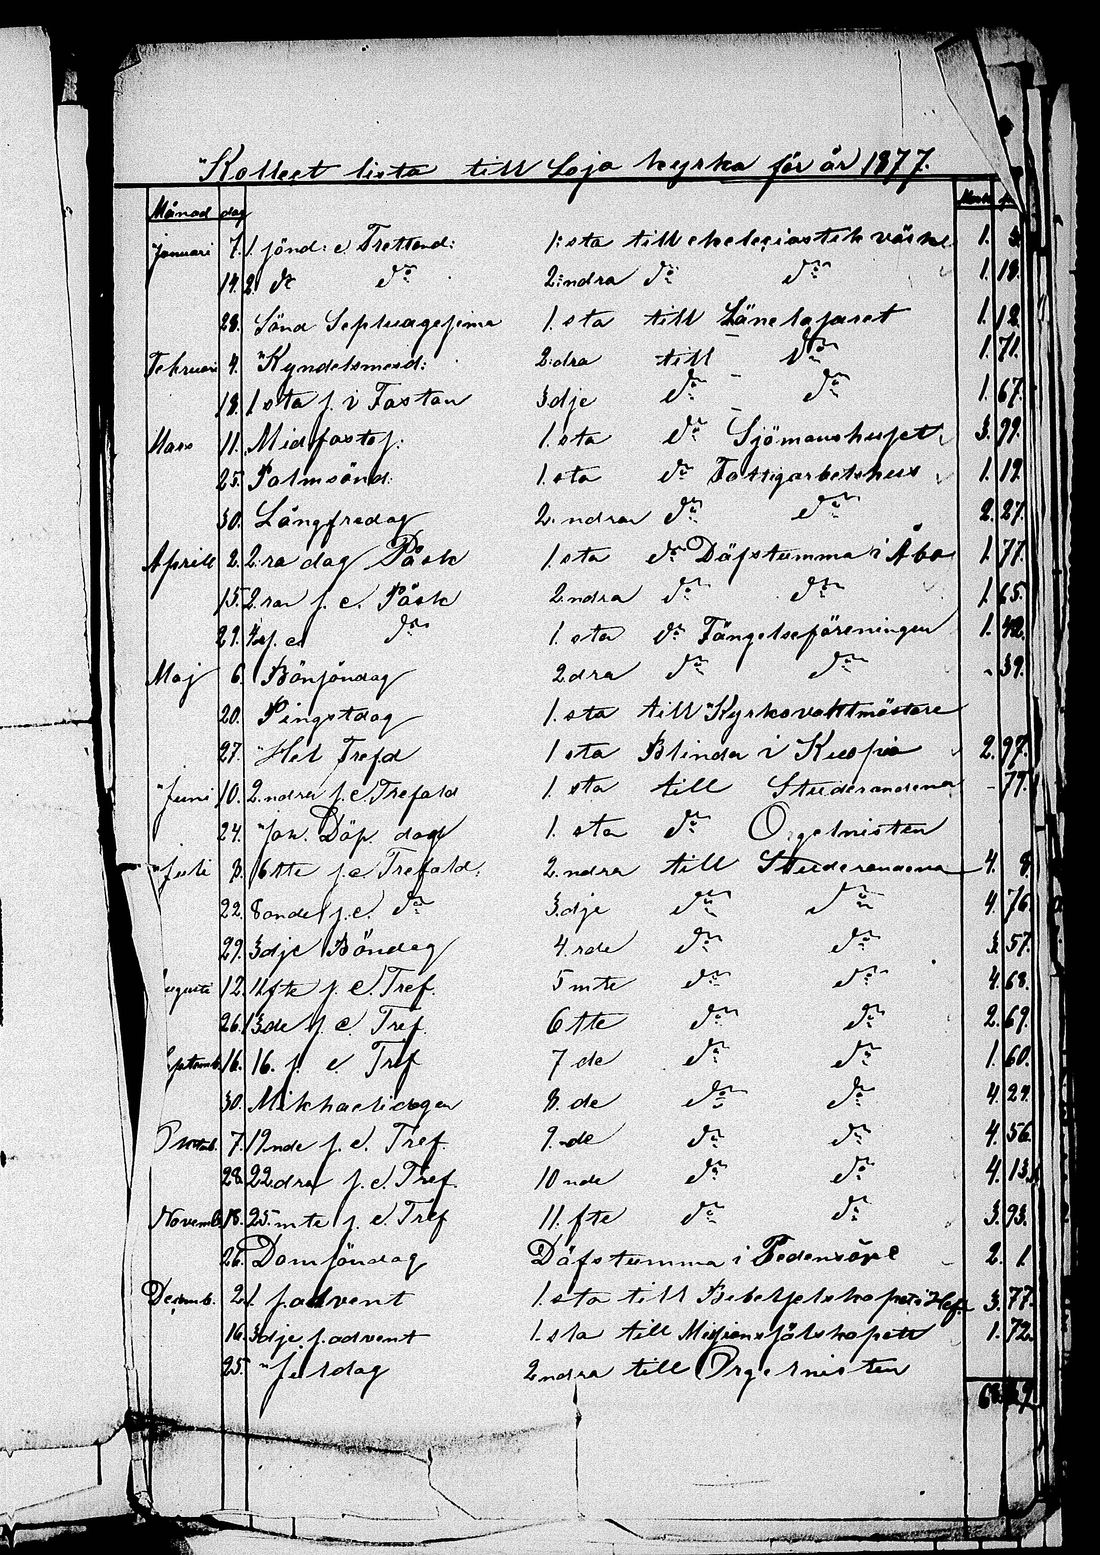 Kollect lista till Loja kyrka för år 1877.
Månad dag Mark p.
Januari 7. 1 sönd: e Trettond: 1:sta till eklesiastik väsne 1.
14. 2. do do 2:ndra do do 1. 18.
28. Sönd Septuagesima 1. sta till Länelasaret 1. 12.
Februari 4. Kyndelsmesd: 2:dra till do 1. 71.
18. 1 sta s. i Fastan 3dje do do 1. 67.
Mars 11. Midfastos: 1. sta do Sjömanshuset 3. 99.
25. Palmsönd: 1. sta do Fattigarbetshus 1. 19.
30. Långfredag 2. ndra do do 2. 27.
Aprill 2. 2.ra dag Påsk 1. sta do Döfstumma i Åbo 1. 77.
15. 2.ra s. e. Påsk 2.ndra do do 1. 65.
29. s. e. do 1. sta do Fängelseföreningen 1.
Maj 6. Bönsöndag 2.dra do do - 39.
20. Pingstdag 1. sta till Kyrkovaktmästare
27. Hel Trefd 1 sta Blinda i Kuopio 2. 97.
Juni 10. 2.ndra s. e. Trefald 1. sta till Studerandena - 77.
24. Joh. Döp. dag 1. sta do Orgelnisten
Juli 8. 6tte s. e Trefald: 2.ndra till Studerandena 4. 8
22. 8onde s. e. do 3.dje do do 4. 76.
29. 3dje Böndag 4. rde do do 3. 57.
ugusti 12. 11fte s. e. Tref. 5 mte do do 4. 68.
26. 13de s. e. Tref. 6 tte do do 2. 69.
Septemb. 16. 16. s. e Tref 7 de do do 1. 60.
30. Mikhaelidagen 8. de do do 4. 27.
Octob. 7. 19nde s. e. Tref. 9. de do do 4. 56.
28. 22dra s. e. Tref. 10 nde do do 4. 13.
Novemb. 18. 25. mte s. e. Tref 11. fte do do 3. 93.
26. Domsöndag Döfstumma i Pedersöre 2. 1.
Decemb. 2. 1. s. advent 1. sta till Bibelselskapet i Hef. 3. 77.
16. 3dje s. advent 1. sta till Missionssälskapett 1. 72.
25. Juldag 2.ndra till Orgelnisten